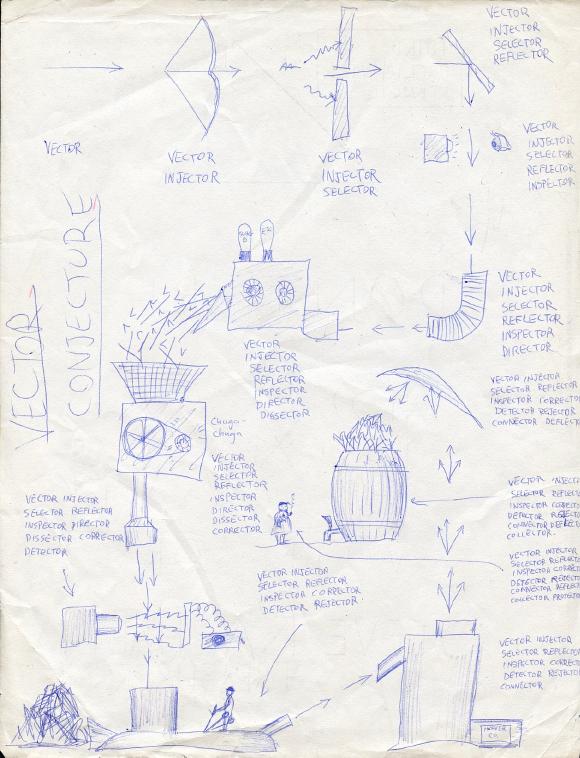 VECTOR
INJECTOR
SELECTOR
REFLECTOR
VECTOR
VECTOR
INJECTOR
VECTOR
INJECTOR
SELECTOR
VECTOR
INJECTOR
SELECTOR
REFLECTOR
INSPECTOR
VECTOR
CONJECTURE
VECTOR
INJECTOR
SELECTOR
REFLECTOR
INSPECTOR
DIRECTOR
VECTOR
INJECTOR
SELECTOR
REFLECTOR
INSPECTOR
DIRECTOR
DISSECTOR
VECTOR INJECTOR
SELECTOR REFLECTOR
INSPECTOR CORRECTO
DETECTOR REJECTOR
CONNECTOR DEFLECTO
Chuga-
chuga
VECTOR
INJECTOR
SELECTOR
REFLECTOR
INSPECTOR
DIRECTOR
DISSECTOR
CORRECTOR
VECTOR INJECTOR
SELECTOR REFLECTOR
INSPECTOR DIRECTOR
DISSECTOR CORRECTOR
DETECTOR
VECTOR INJECT
SELECTOR REFLEC
COLLECTOR.
VECTOR INJECTOR
SELECTOR REFLECTOR
INSPECTOR CORRECTOR
DETECTOR REJECTOR
VECTOR INJECTO
SELECTOR REFLECT
INSPECTOR CORRECT
DETECTOR REJECTO
CONNECTOR DEFLECT
COLLECTOR PROTECTO
VECTOR INJECTOR
SELECTOR REFLECTOR
INSPECTOR CORRECTO
DETECTOR REJECTO
CONNECTOR